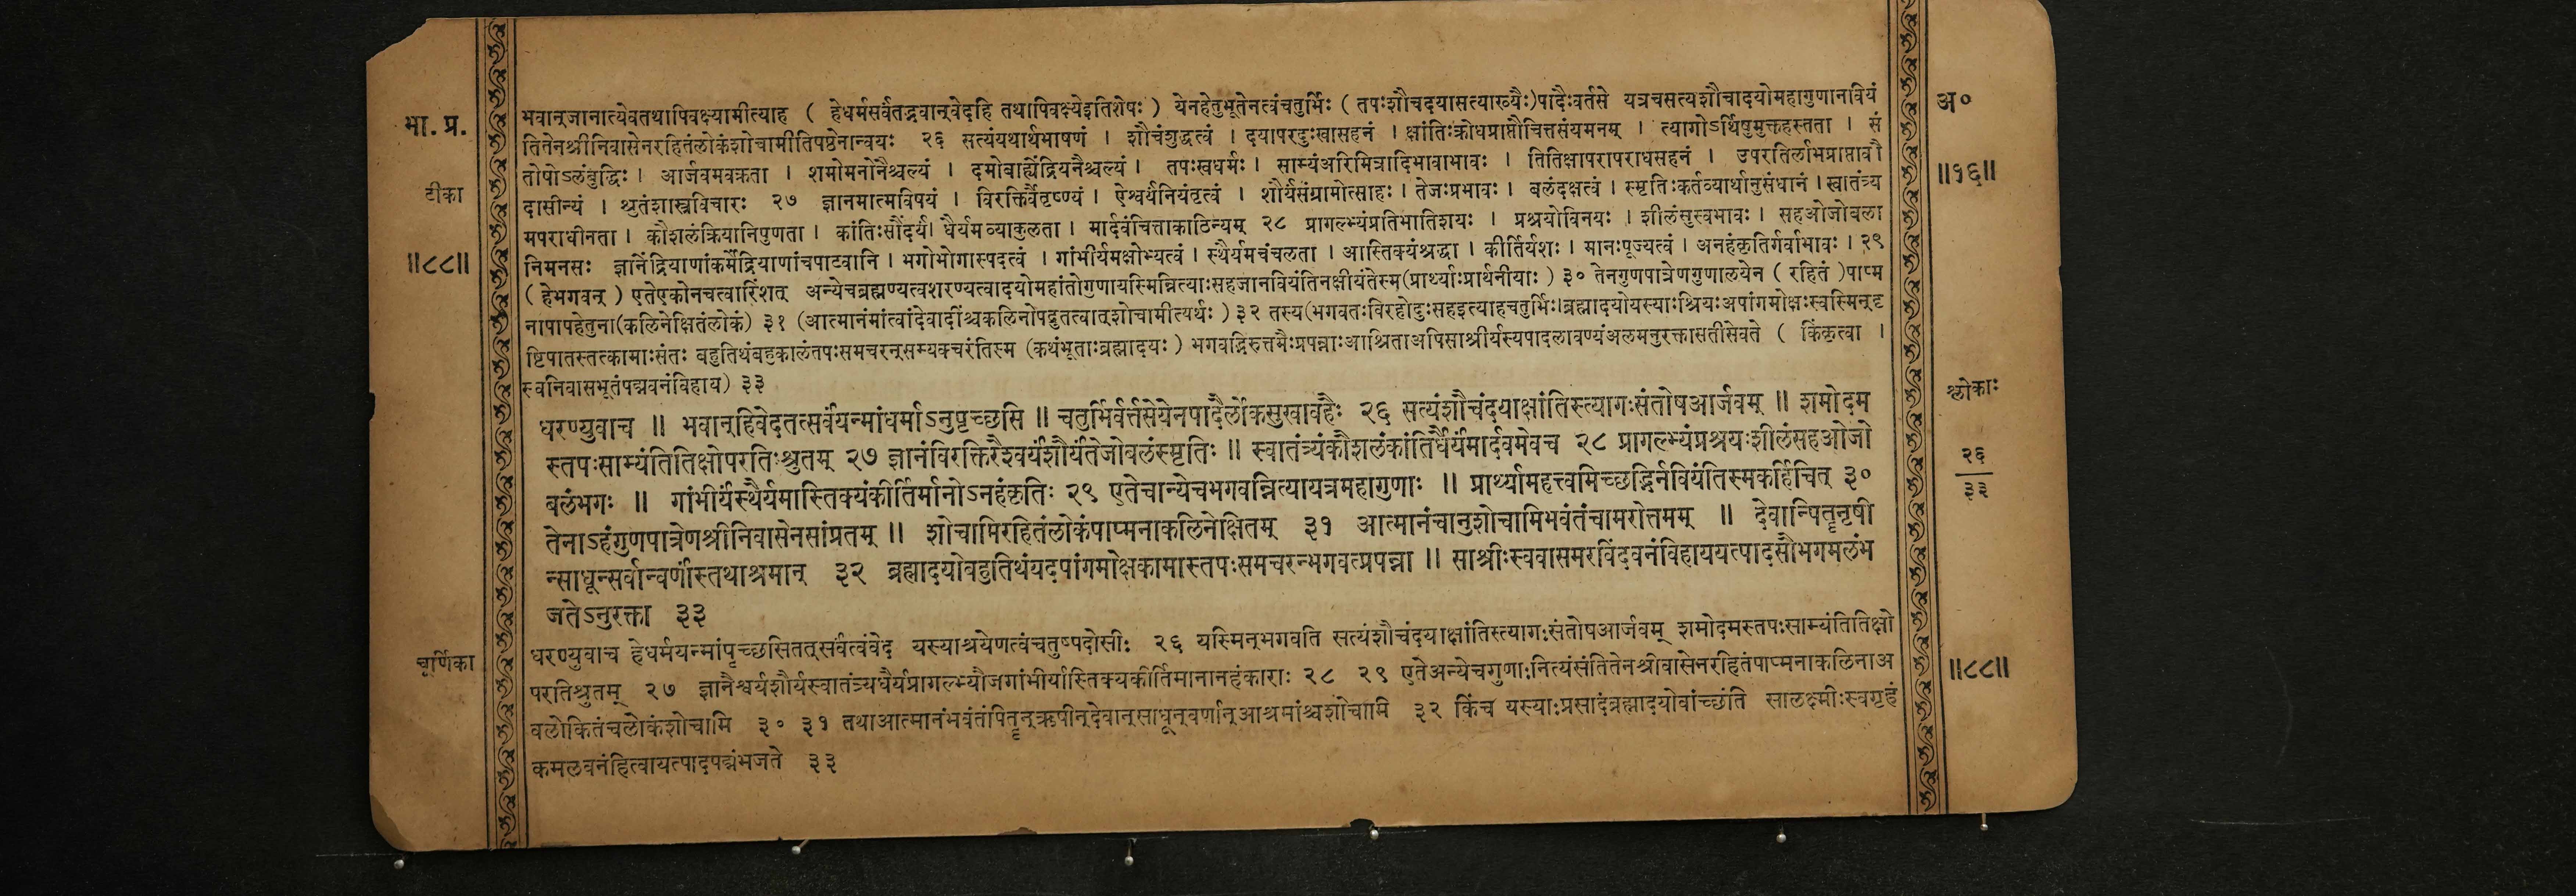 भा. प्र.
टीका
॥८८॥
भवान्जानात्येवतथापिवक्ष्यामीत्याह ( हेधर्मसर्वंतद्भवान्वेदहि तथापिवक्ष्येइतिशेषः ) येनहेतुभूतेनत्वंचतुर्भिः ( तपःशौचदयासत्याख्यैः)पादैःवर्तसे यत्रचसत्यशौचादयोमहागुणानवियं
तितेनश्रीनिवासेनरहितंलोकंशोचामीतिपष्ठेनान्वयः २६ सत्यंयथार्थभाषणं । शौचंशुद्धत्वं । दयापरदुःखासहनं । क्षांतिःक्रोधप्राप्तौचित्तसंयमनम् । त्यागोऽर्थिषुमुक्तहस्तता । सं
तोषोऽलंबुद्धिः । आर्जवमवक्रता । शमोमनोनैश्चल्यं । दमोबाह्येंद्रियनैश्चल्यं । तपःस्वधर्मः । साम्यंअरिमित्रादिभावाभावः । तितिक्षापरापराधसहनं । उपरतिर्लाभप्राप्तावौ
दासीन्यं । श्रुतंशास्त्रविचारः २७ ज्ञानमात्मविषयं । विरक्तिर्वैतृष्ण्यं । ऐश्वर्यंनियंतृत्वं । शौर्यंसंग्रामोत्साहः । तेजःप्रभावः । बलंदक्षत्वं । स्मृतिःकर्तव्यार्थानुसंधानं । स्वातंत्र्य
मपराधीनता । कौशलंक्रियानिपुणता । कांतिःसौंदर्यं। धैर्यमव्याकुलता । मार्दवंचित्ताकाठिन्यम् २८ प्रागल्भ्यंप्रतिभातिशयः । प्रश्रयोविनयः । शीलंसुस्वभावः । सहओजोबला
निमनसः ज्ञानेंद्रियाणांकर्मेंद्रियाणांचपाटवानि । भगोभोगास्पदत्वं । गांभीर्यमक्षोभ्यत्वं । स्थैर्यमचंचलता । आस्तिक्यंश्रद्धा । कीर्तिर्यशः । मानःपूज्यत्वं । अनहंकृतिर्गर्वाभावः । २९
( हेभगवन् ) एतेएकोनचत्वारिंशत् अन्येचब्रह्मण्यत्वशरण्यत्वादयोमहांतोगुणायस्मिन्नित्याःसहजानवियंतिनक्षीयंतेस्म(प्रार्थ्याःप्रार्थनीयाः ) ३० तेनगुणपात्रेणगुणालयेन ( रहितं )पाप्म
नापापहेतुना(कलिनेक्षितंलोकं) ३१ (आत्मानंमांत्वांदेवादींश्चकलिनोपद्रुतत्वात्शोचामीत्यर्थः ) ३२ तस्य(भगवतःविरहोदुःसहइत्याहचतुर्भिः।ब्रह्मादयोयस्याःश्रियःअपांगमोक्षःस्वस्मिन्दृ
ष्टिपातस्तत्कामाःसंतः बहुतिथंबहुकालंतपःसमचरन्सम्यक्चरंतिस्म (कथंभूताःब्रह्मादयः ) भगवद्भिरुत्तमैःप्रपन्नाःआश्रिताअपिसाश्रीर्यस्यपादलावण्यंअलमनुरक्तासतीसेवते ( किंकृत्वा ।
स्वनिवासभूतंपद्मवनंविहाय) ३३
धरण्युवाच ॥ भवान्हिवेदतत्सर्वंयन्मांधर्माऽनुपृच्छसि ॥ चतुर्भिर्वर्त्तसेयेनपादैर्लोकसुखावहैः २६ सत्यंशौचंदयाक्षांतिस्त्यागःसंतोषआर्जवम् ॥ शमोदम
स्तपःसाम्यंतितिक्षोपरतिःश्रुतम् २७ ज्ञानंविरक्तिरैश्वर्यंशौर्यंतेजोबलंस्मृतिः ॥ स्वातंत्र्यंकौशलंकांतिर्धैर्यंमार्दवमेवच २८ प्रागल्भ्यंप्रश्रयःशीलंसहओजो
बलंभगः ॥ गांभीर्यंस्थैर्यमास्तिक्यंकीर्तिर्मानोऽनहंकृतिः २९ एतेचान्येचभगवन्नित्यायत्रमहागुणाः ॥ प्रार्थ्यामहत्त्वमिच्छद्भिर्नवियंतिस्मकर्हिचित् ३०
तेनाऽहंगुणपात्रेणश्रीनिवासेनसांप्रतम् ॥ शोचामिरहितंलोकंपाप्मनाकलिनेक्षितम् ३१ आत्मानंचानुशोचामिभवंतंचामरोत्तमम् ॥ देवान्पितॄनृषी
न्साधून्सर्वान्वर्णांस्तथाश्रमान् ३२ ब्रह्मादयोबहुतिथंयदपांगमोक्षकामास्तपःसमचरन्भगवत्प्रपन्ना ॥ साश्रीःस्ववासमरविंदवनंविहाययत्पादसौभगमलंभ
जतेऽनुरक्ता ३३
चूर्णिका
धरण्युवाच हेधर्मयन्मांपृच्छसितत्सर्वंत्वंवेद यस्याश्रयेणत्वंचतुष्पदोसीः २६ यस्मिन्भगवति सत्यंशौचंदयाक्षांतिस्त्यागःसंतोषआर्जवम् शमोदमस्तपःसाम्यंतितिक्षो
परतिश्रुतम् २७ ज्ञानैश्वर्यशौर्यस्वातंत्र्यधैर्यप्रागल्भ्यौजगांभीर्यास्तिक्यकीर्तिमानानहंकाराः २८ २९ एतेअन्येचगुणाःनित्यंसंतितेनश्रीवासेनरहितंपाप्मनाकलिनाअ
वलोकितंचलोकंशोचामि ३० ३१ तथाआत्मानंभवंतंपितॄन्ऋषीन्देवान्साधून्वर्णान्आश्रमांश्चशोचामि ३२ किंच यस्याःप्रसादंब्रह्मादयोवांच्छंति सालक्ष्मीःस्वगृहं
कमलवनंहित्वायत्पादपद्मंभजते ३३
अ०
॥१६॥
श्लोकाः
२६
३३
॥८८॥